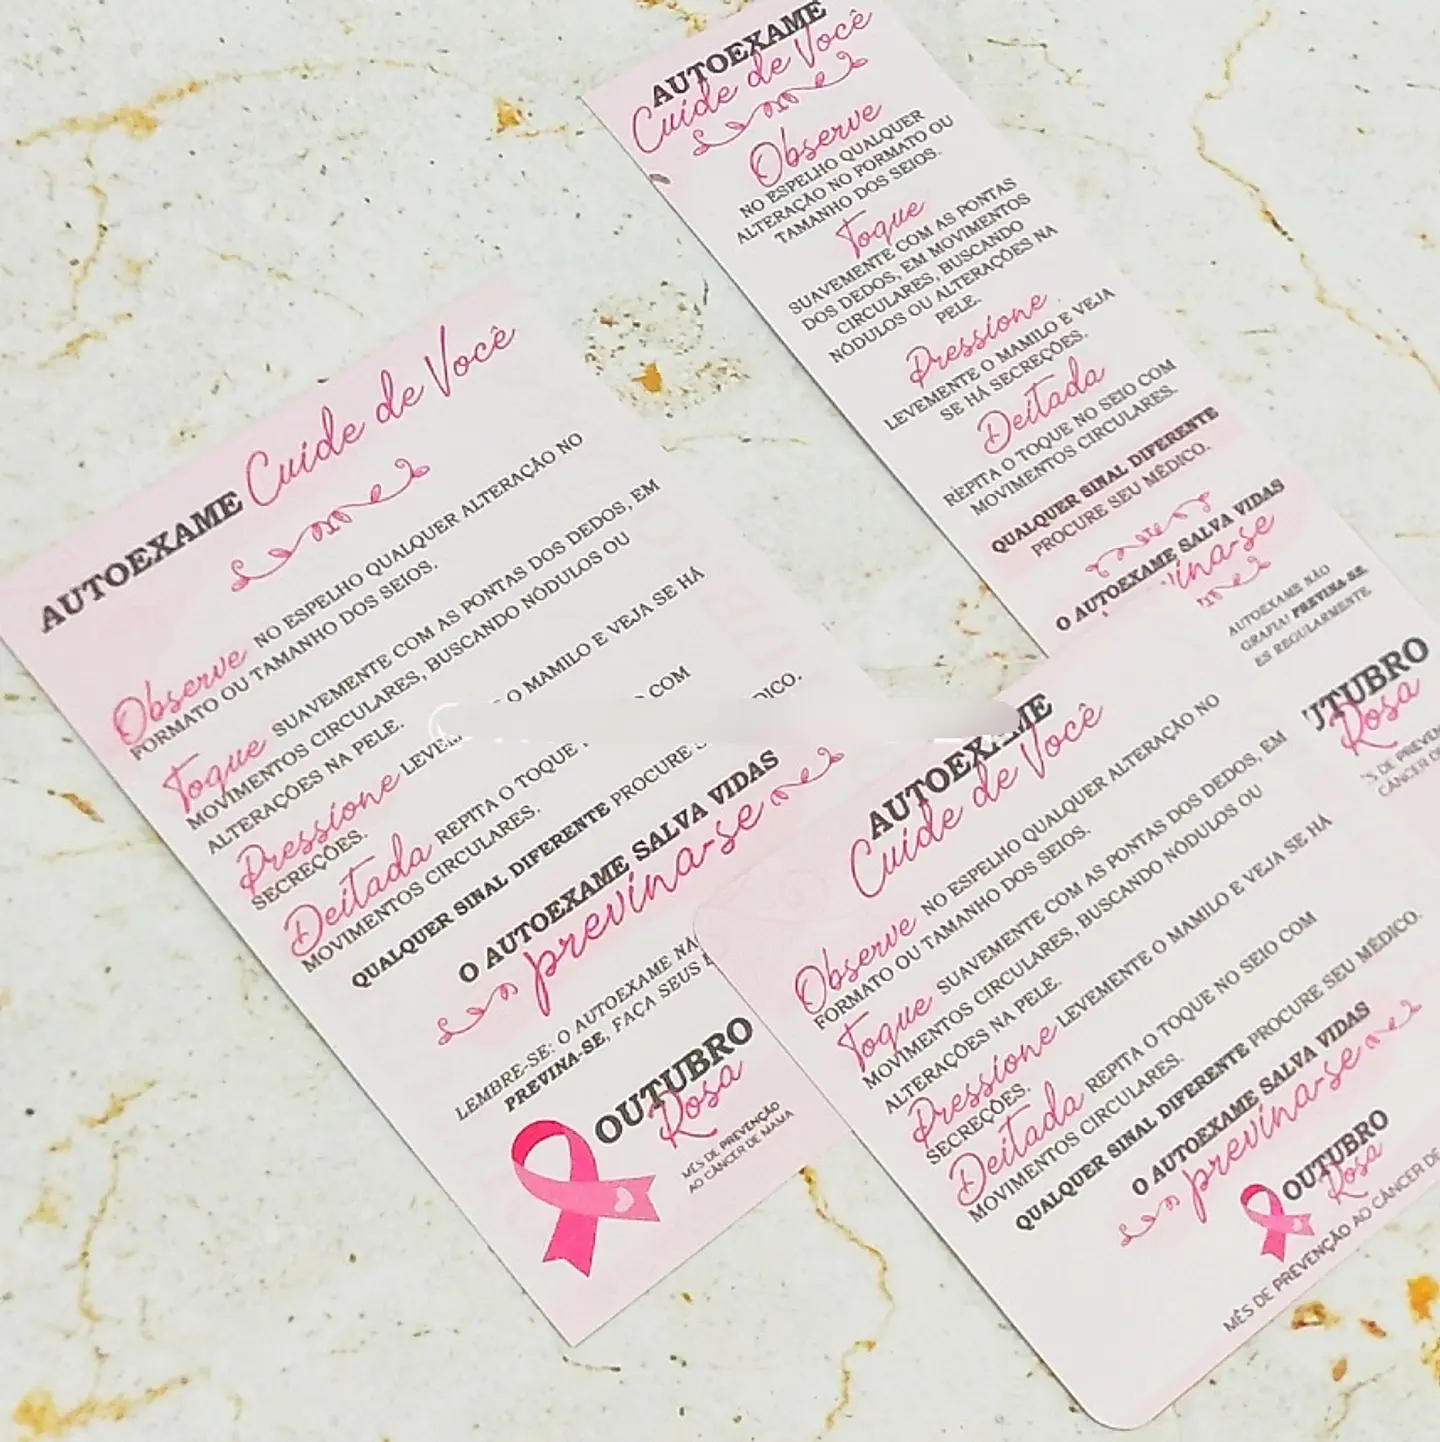 AUTOEXAME Cuide de Você
Observe NO ESPELHO QUALQUER ALTERAÇÃO NO
FORMATO OU TAMANHO DOS SEIOS.
Toque SUAVEMENTE COM AS PONTAS DOS DEDOS, EM
MOVIMENTOS CIRCULARES, BUSCANDO NÓDULOS OU
ALTERAÇÕES NA PELE.
Pressione O MAMILO E VEJA SE HÁ
SECREÇÕES.
Deitada REPITA O TOQUE COM
MOVIMENTOS CIRCULARES.
QUALQUER SINAL DIFERENTE PROCURE
O AUTOEXAME SALVA VIDAS
previna-se
LEMBRE-SE: O AUTOEXAME
PREVINA-SE, FAÇA SEUS
OUTUBRO
Rosa
MÊS DE PREVENÇÃO
AO CÂNCER DE MAMA
AUTOEXAME
Cuide de Você
Observe
NO ESPELHO QUALQUER
ALTERAÇÃO NO FORMATO OU
TAMANHO DOS SEIOS.
Toque
SUAVEMENTE COM AS PONTAS
DOS DEDOS, EM MOVIMENTOS
CIRCULARES, BUSCANDO
NÓDULOS OU ALTERAÇÕES NA
PELE.
Pressione
LEVEMENTE O MAMILO E VEJA
SE HÁ SECREÇÕES.
Deitada
REPITA O TOQUE NO SEIO COM
MOVIMENTOS CIRCULARES.
QUALQUER SINAL DIFERENTE
PROCURE SEU MÉDICO.
O AUTOEXAME SALVA VIDAS
AUTOEXAME NÃO
PREVINA-SE,
REGULARMENTE.
Rosa
AUTOEXAME
Cuide de Você
Observe NO ESPELHO QUALQUER ALTERAÇÃO NO
FORMATO OU TAMANHO DOS SEIOS.
Toque SUAVEMENTE COM AS PONTAS DOS DEDOS, EM
MOVIMENTOS CIRCULARES, BUSCANDO NÓDULOS OU
ALTERAÇÕES NA PELE.
Pressione LEVEMENTE O MAMILO E VEJA SE HÁ
SECREÇÕES.
Deitada REPITA O TOQUE NO SEIO COM
MOVIMENTOS CIRCULARES.
QUALQUER SINAL DIFERENTE PROCURE SEU MÉDICO.
O AUTOEXAME SALVA VIDAS
previna-se
OUTUBRO
Rosa
MÊS DE PREVENÇÃO AO CÂNCER DE